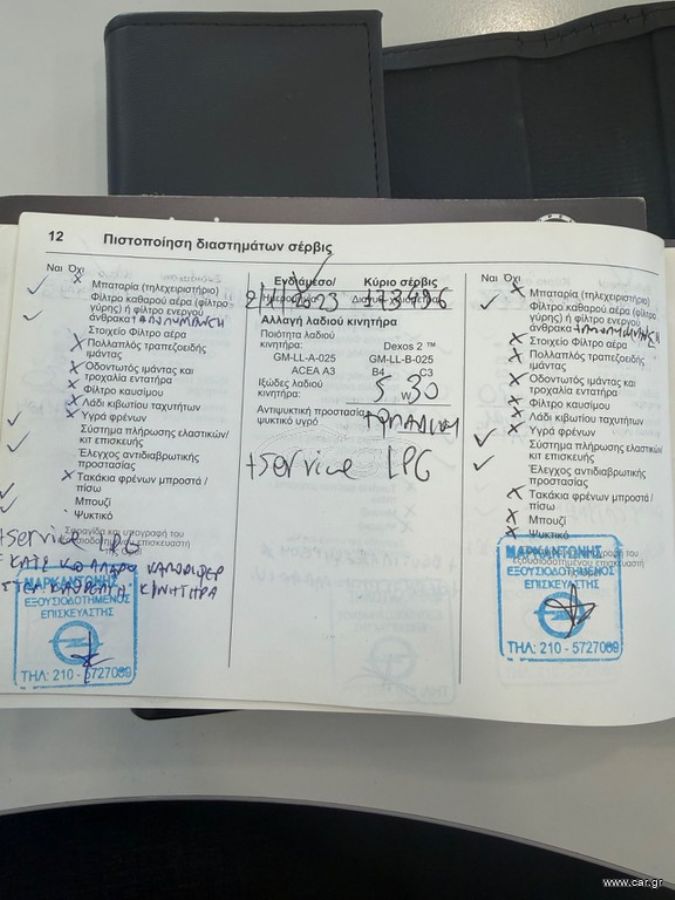 12 Πιστοποίηση διαστημάτων σέρβις
Ναι Όχι
Μπαταρία (τηλεχειριστήριο)
Φίλτρο καθαρού αέρα (φίλτρο
γύρης) ή φίλτρο ενεργού
άνθρακα + ΑΠΟΛΥΜΑΝΣΗ
Στοιχείο Φίλτρο αέρα
Πολλαπλός τραπεζοειδής
ιμάντας
Οδοντωτός ιμάντας και
τροχαλία εντατήρα
Φίλτρο καυσίμου
Λάδι κιβωτίου ταχυτήτων
Υγρά φρένων
Σύστημα πλήρωσης ελαστικών/
κιτ επισκευής
Έλεγχος αντιδιαβρωτικής
προστασίας
Τακάκια φρένων μπροστά /
πίσω
Μπουζί
Ψυκτικό
Σφραγίδα και υπογραφή του
εξουσιοδοτημένου επισκευαστή
+service LPG
ΜΑΡΚΑΝΤΩΝΗΣ
ΕΞΟΥΣΙΟΔΟΤΗΜΕΝΟΣ
ΕΠΙΣΚΕΥΑΣΤΗΣ
ΚΙΝΗΤΗΡΑ
ΤΗΛ: 210 - 5727069
Ενδιάμεσο/ Κύριο σέρβις
2023 173496
Αλλαγή λαδιού κινητήρα
Ποιότητα λαδιού
κινητήρα: Dexos 2 ™
GM-LL-A-025 GM-LL-B-025
ACEA A3 B4 C3
Ιξώδες λαδιού
κινητήρα: 5 W 30
Αντιψυκτική προστασία,
ψυκτικό υγρό
+service LPG
Ναι Όχι
Μπαταρία (τηλεχειριστήριο)
Φίλτρο καθαρού αέρα (φίλτρο
γύρης) ή φίλτρο ενεργού
άνθρακα + ΑΠΟΛΥΜΑΝΣΗ
Στοιχείο Φίλτρο αέρα
Πολλαπλός τραπεζοειδής
ιμάντας
Οδοντωτός ιμάντας και
τροχαλία εντατήρα
Φίλτρο καυσίμου
Λάδι κιβωτίου ταχυτήτων
Υγρά φρένων
Σύστημα πλήρωσης ελαστικών/
κιτ επισκευής
Έλεγχος αντιδιαβρωτικής
προστασίας
Τακάκια φρένων μπροστά /
πίσω
Μπουζί
Ψυκτικό
εξουσιοδοτημένου επισκευαστή
ΜΑΡΚΑΝΤΩΝΗΣ
ΕΞΟΥΣΙΟΔΟΤΗΜΕΝΟΣ
ΕΠΙΣΚΕΥΑΣΤΗΣ
ΤΗΛ: 210 - 5727069
www.car.gr